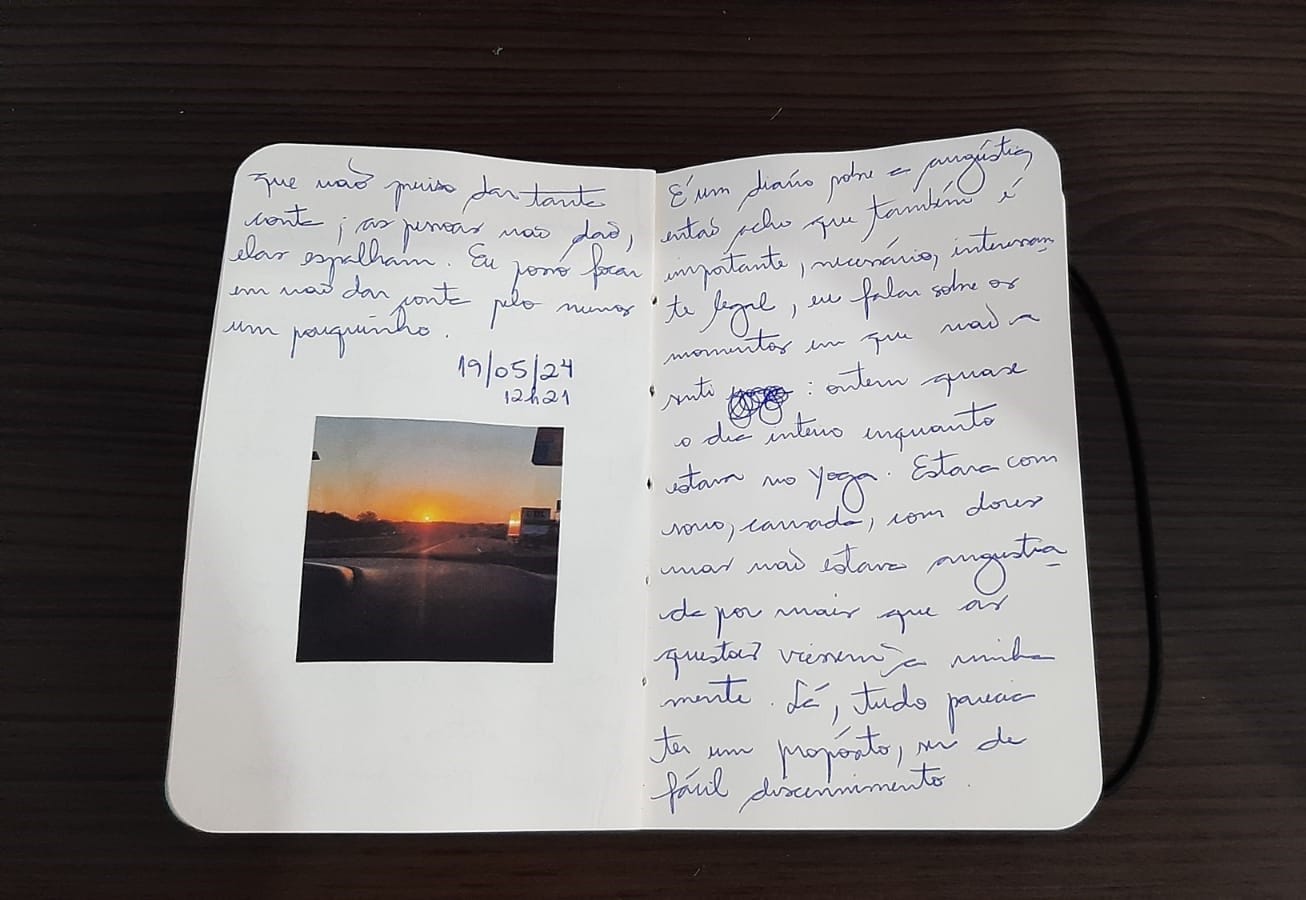 que não preciso dar tanta
conta; as pessoas não dão,
elas espalham. Eu posso focar
em não dar conta pelo menos
um pouquinho.
19/05/24
12h21
É um diário sobre a angústia,
então acho que também é
importante, necessário, interessan
te legal, eu falar sobre os
momentos em que não a
senti : ontem quase
o dia inteiro enquanto
estava no Yoga. Estava com
sono, cansada, com dores
mas não estava angustia
da por mais que as
questões viessem à minha
mente. Lá, tudo parecia
ter um propósito, ser de
fácil discernimento.